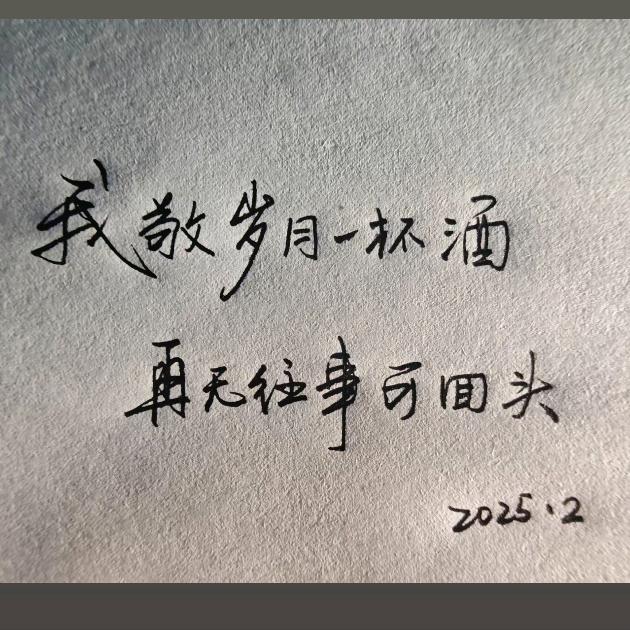 我敬岁月一杯酒
再无往事可回头
2025.2